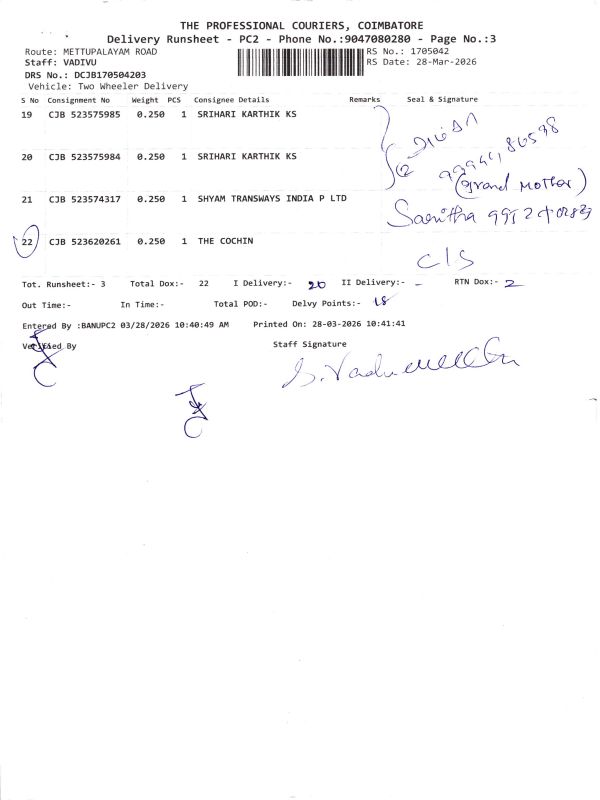 THE PROFESSIONAL COURIERS, COIMBATORE
Delivery Runsheet - PC2 - Phone No.:9047080280 - Page No.:3
Route: METTUPALAYAM ROAD RS No.: 1705042
Staff: VADIVU RS Date: 28-Mar-2026
DRS No.: DCJB170504203
Vehicle: Two Wheeler Delivery
S No Consignment No Weight PCS Consignee Details Remarks Seal & Signature
19 CJB 523575985 0.250 1 SRIHARI KARTHIK KS
20 CJB 523575984 0.250 1 SRIHARI KARTHIK KS
(Grand Mother)
21 CJB 523574317 0.250 1 SHYAM TRANSWAYS INDIA P LTD
22 CJB 523620261 0.250 1 THE COCHIN
C/S
Tot. Runsheet:- 3 Total Dox:- 22 I Delivery:- 20 II Delivery:- - RTN Dox:- 2
Out Time:- In Time:- Total POD:- Delvy Points:- 18
Entered By :BANUPC2 03/28/2026 10:40:49 AM Printed On: 28-03-2026 10:41:41
Verified By Staff Signature